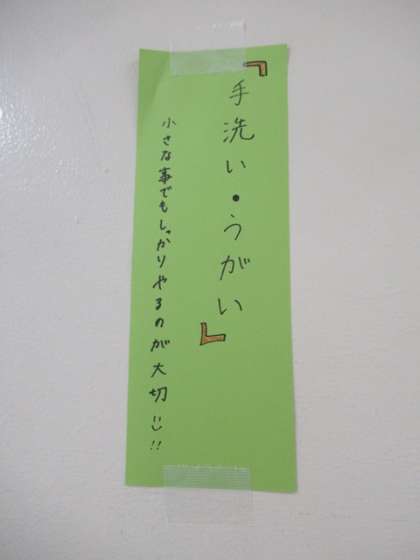 『手洗い・うがい』
小さな事でもしっかりやるのが大切!!